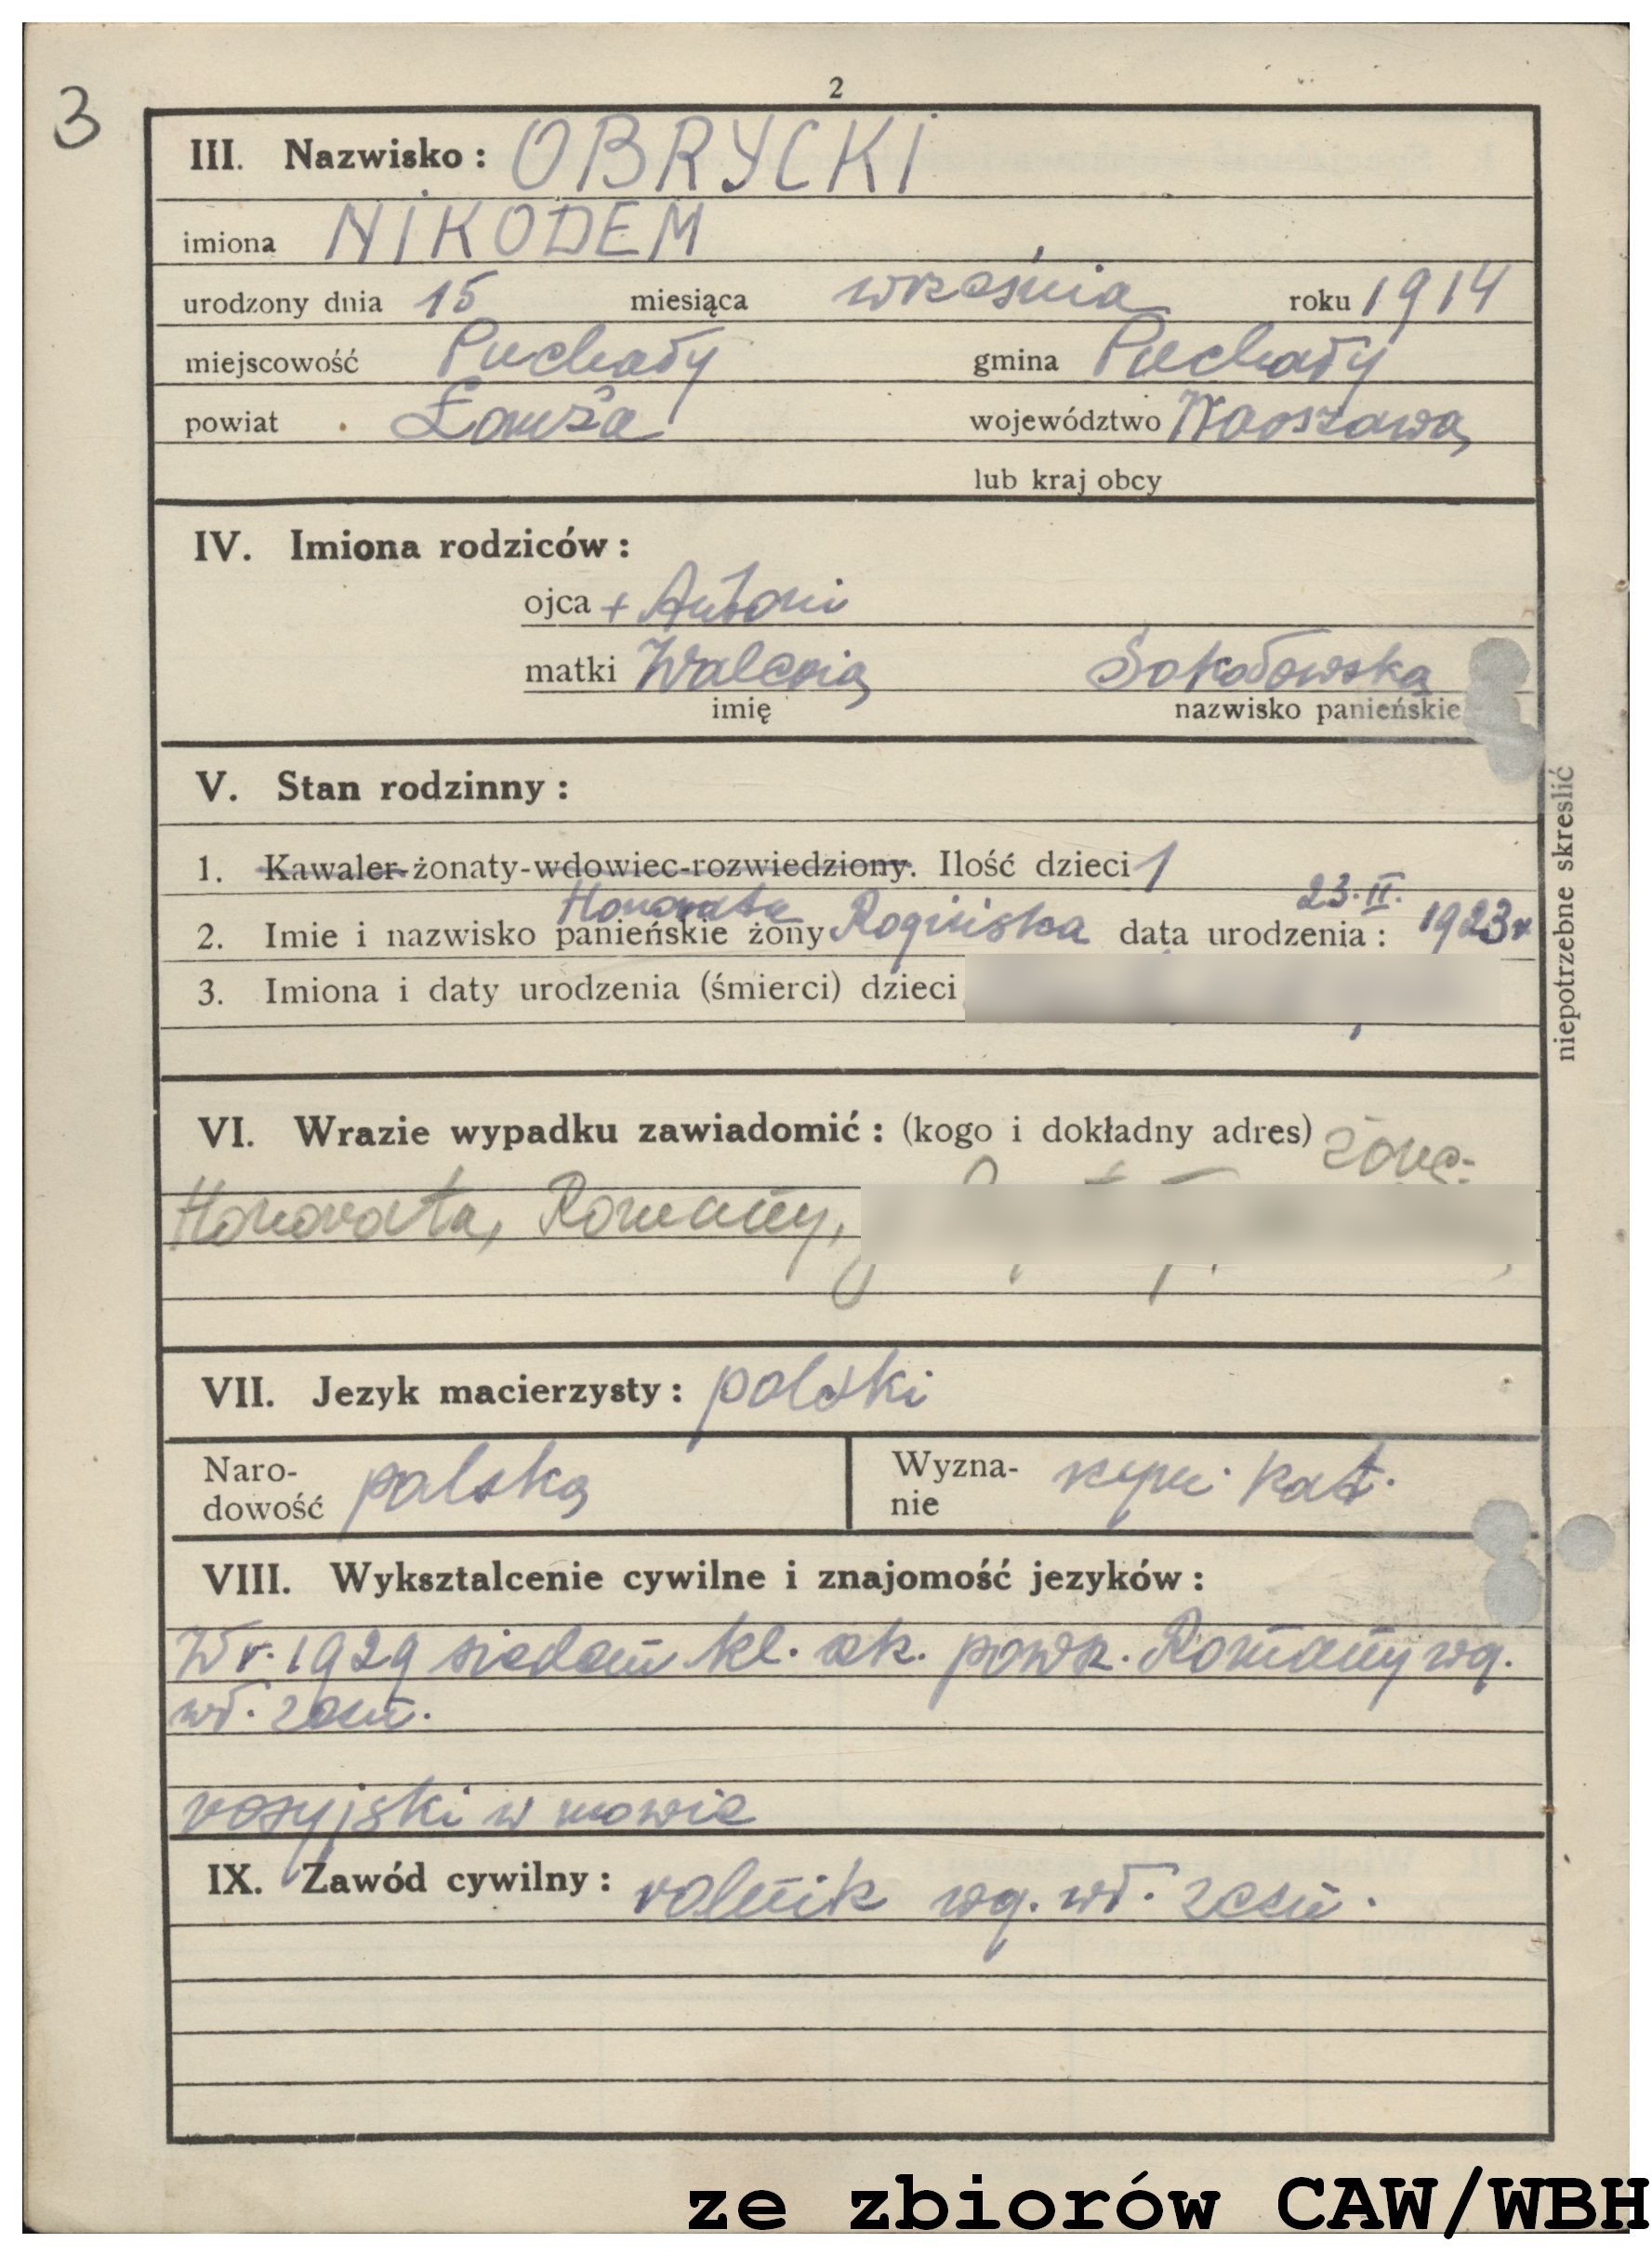 3
2
III. Nazwisko: OBRYCKI
imiona NIKODEM
urodzony dnia 15 miesiąca września roku 1914
miejscowość Puchały gmina Puchały
powiat Łomża województwo Warszawa
lub kraj obcy
IV. Imiona rodziców:
ojca + Antoni
matki Waleria Sokołowska
imię nazwisko panieńskie
V. Stan rodzinny:
1. Kawaler-żonaty-wdowiec-rozwiedziony. Ilość dzieci 1
Honorata 23.II.
2. Imie i nazwisko panieńskie żony Rogińska data urodzenia: 1923r
3. Imiona i daty urodzenia (śmierci) dzieci
niepotrzebne skreslić
VI. Wrazie wypadku zawiadomić: (kogo i dokładny adres) żona:
Honorata, Romany,
VII. Jezyk macierzysty: polski
Naro-dowość polska Wyzna-nie rzym. kat.
VIII. Wyksztalcenie cywilne i znajomość jezyków:
W r. 1929 siedem kl. szk. powsz. Romany wg.
wł. zezn.
rosyjski w mowie
IX. Zawód cywilny: rolnik wg. wł. zezn.
ze zbiorów CAW/WBH